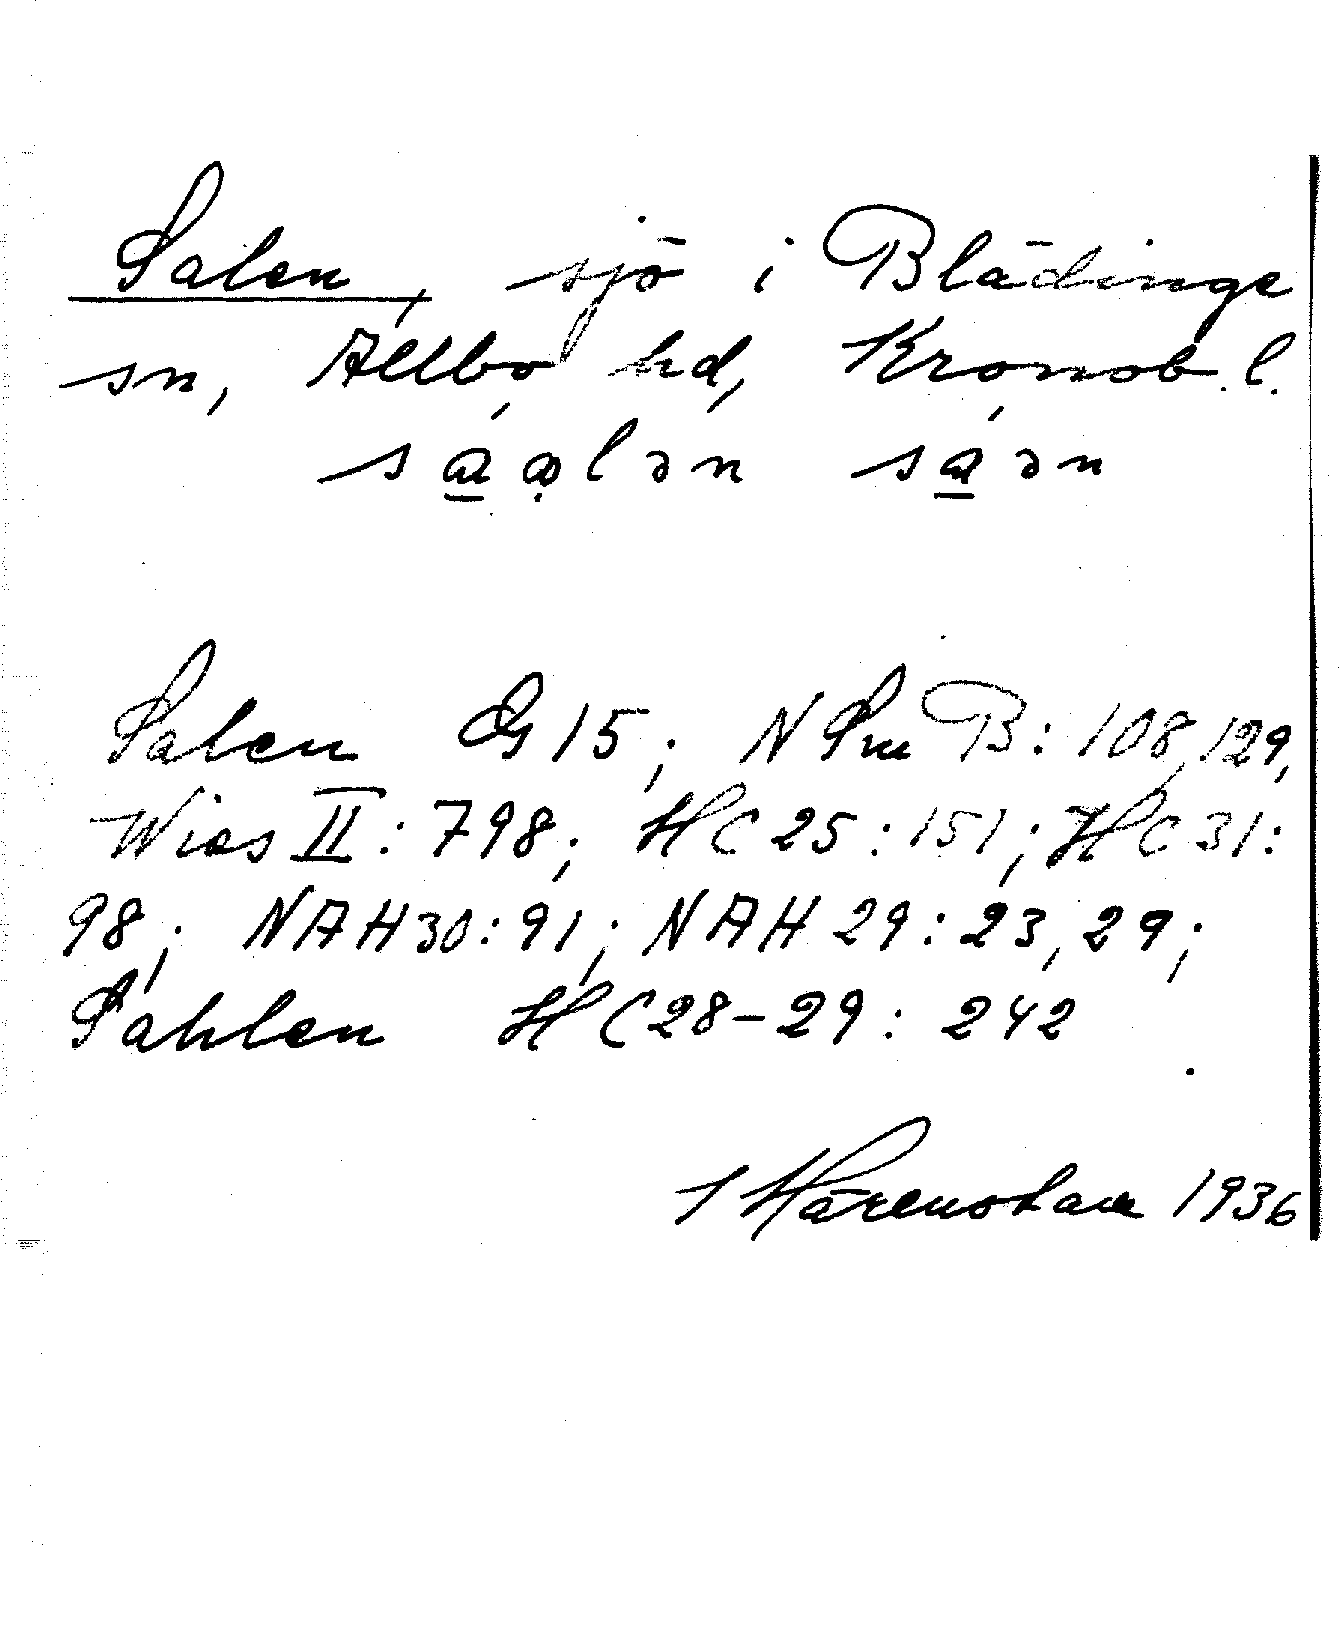 Salen, sjö i Blädinge
sn, Allbo hd, Kronob. l.
sɑ̱́ɑ̣lən sɑ̱́ən
Salen G 15; N Sm B: 108, 129,
Wies II: 798; HC 25: 151; HC 31:
98; NAH 30: 91; NAH 29: 23, 29;
Sahlen HC 28-29: 242
1936